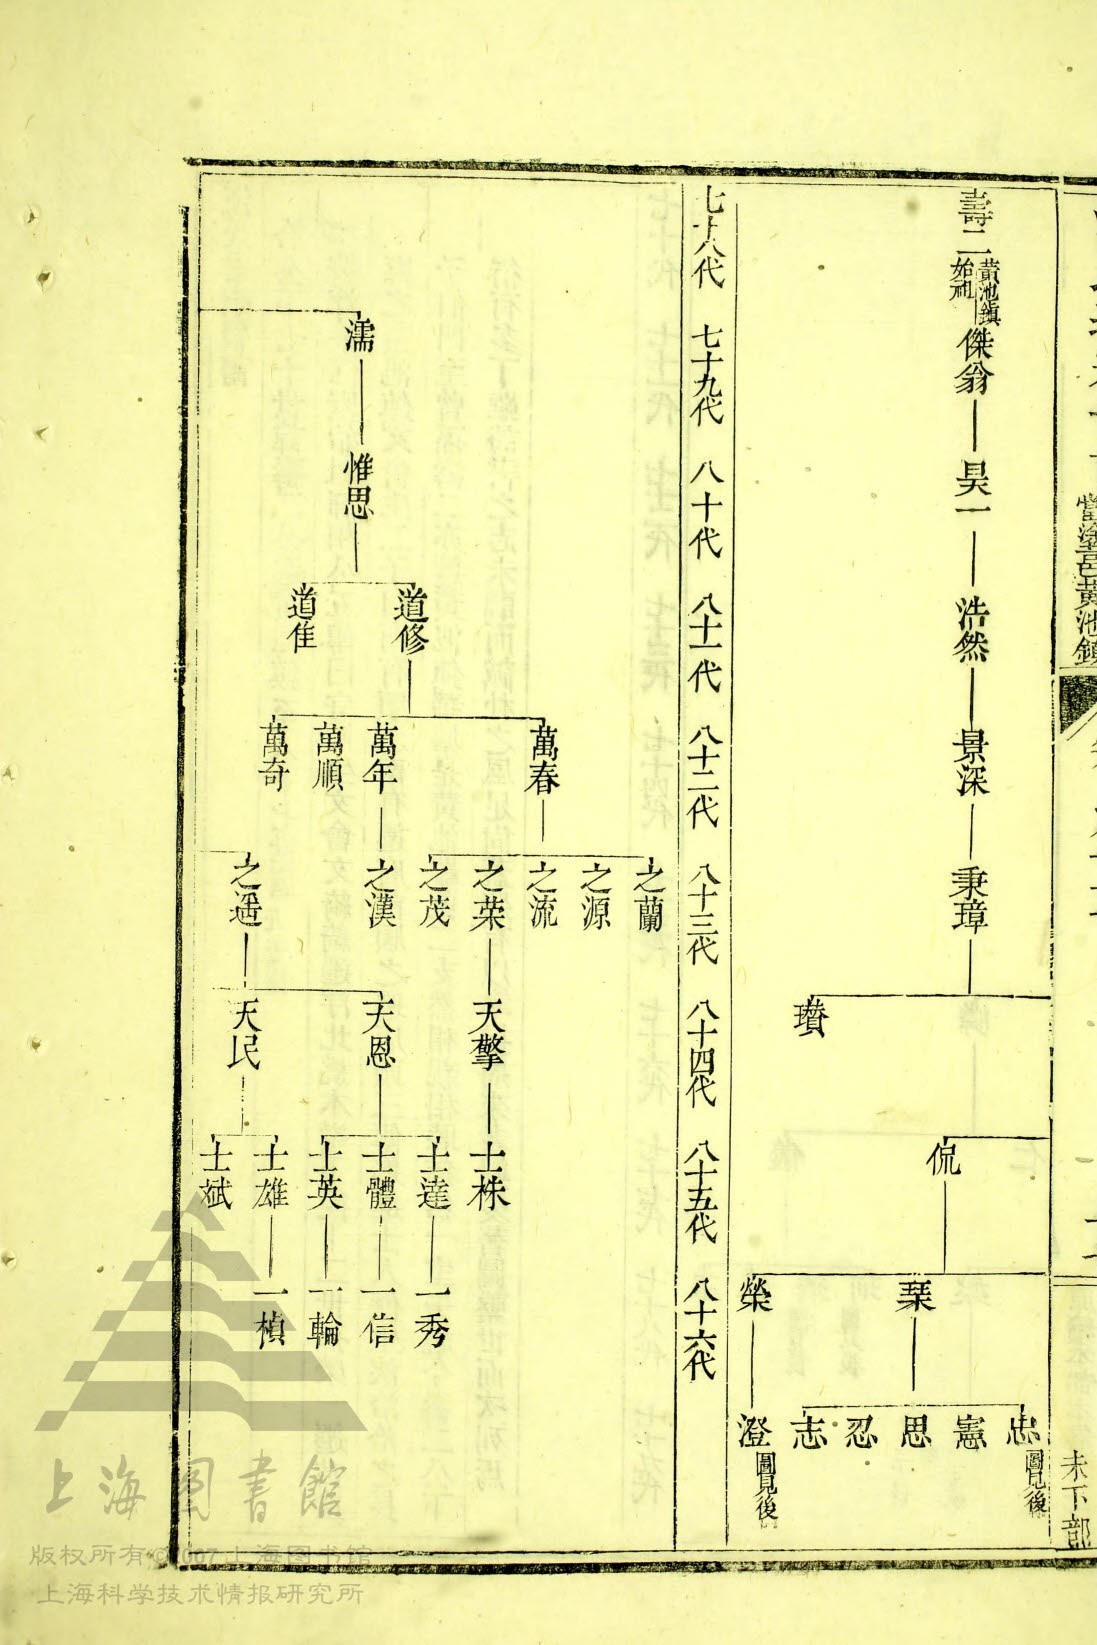 當塗邑黃池鎮
未下部
壽二
黃池鎮
始祖
傑翁
昊一
浩然
景深
秉璋
瓚
侃
琹
榮
忠
圖見後
憲
思
忍
志
澄
圖見後
七十八代 七十九代 八十代 八十一代 八十二代 八十三代 八十四代 八十五代 八十六代
濡
惟思
道修
道隹
萬春
萬年
萬順
萬奇
之蘭
之源
之流
之荣
之茂
之漢
之遥
天擎
天恩
天民
士株
士達
士體
士英
士雄
士斌
一秀
一信
一輪
一楨
上海图書館
版权所有©2007上海图书馆
上海科学技术情报研究所